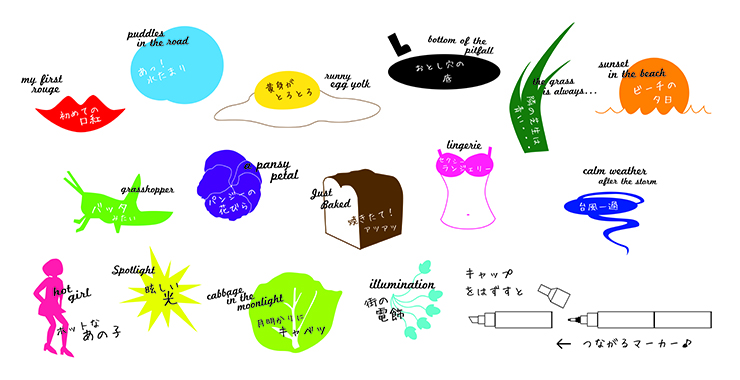 puddles
in the road
あっ！
水たまり
my first
rouge
初めての
口紅
runny
egg yolk
黄身が
とろとろ
bottom of the
pitfall
おとし穴の
底
the grass
is always...
隣の芝生は
青い・・・
sunset
in the beach
ビーチの
夕日
grasshopper
バッタ
みたい
a pansy
petal
パンジーの
花びら
Just
Baked
焼きたて！
アツアツ
lingerie
セクシー
ランジェリー
calm weather
after the storm
台風一過
hot
girl
ホットな
あの子
Spotlight
眩しい
光
cabbage
in the
moonlight
月明かりに
キャベツ
illumination
街の
電飾
キャップ
をはずすと
← つながるマーカー♪